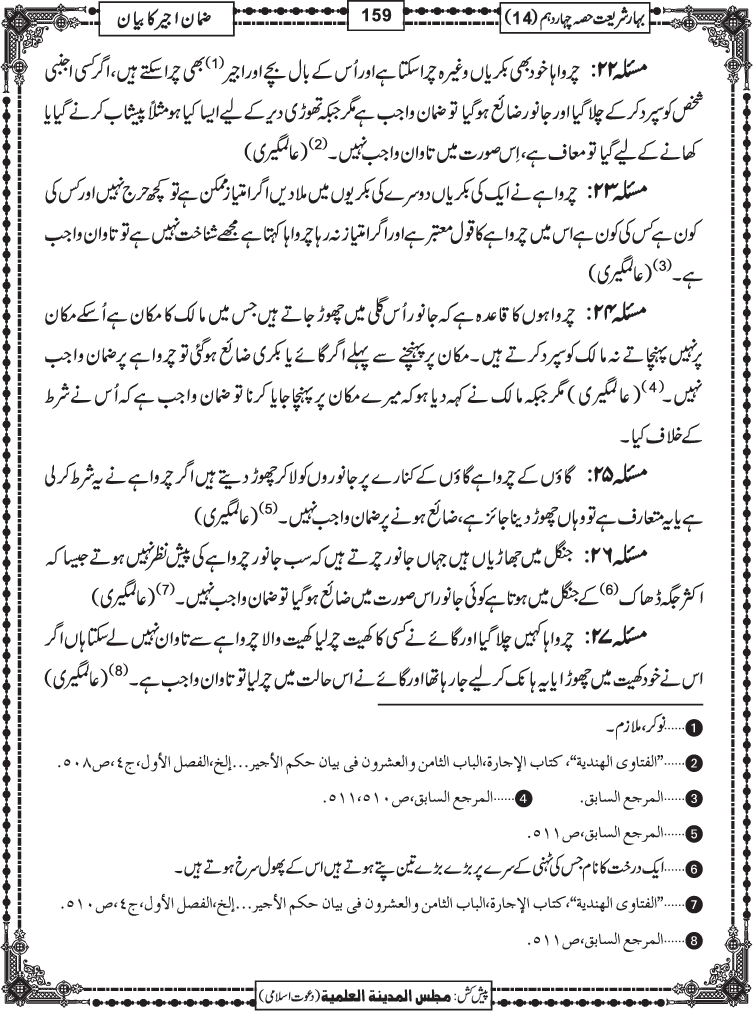 بہار شریعت حصہ چہاردہم (14)
159
ضمان اجیر کا بیان
مسئلہ ۲۲: چرواہا خود بھی بکریاں وغیرہ چرا سکتا ہے اور اُس کے بال بچے اور اجیر(1) بھی چرا سکتے ہیں، اگر کسی اجنبی
شخص کو سپرد کر کے چلا گیا اور جانور ضائع ہو گیا تو ضمان واجب ہے مگر جبکہ تھوڑی دیر کے لیے ایسا کیا ہو مثلاً پیشاب کرنے گیا یا
کھانے کے لیے گیا تو معاف ہے، اِس صورت میں تاوان واجب نہیں۔(2) (عالمگیری)
مسئلہ ۲۳: چرواہے نے ایک کی بکریاں دوسرے کی بکریوں میں ملا دیں اگر امتیاز ممکن ہے تو کچھ حرج نہیں اور کس کی
کون ہے کس کی کون ہے اس میں چرواہے کا قول معتبر ہے اور اگر امتیاز نہ رہا چرواہا کہتا ہے مجھے شناخت نہیں ہے تو تاوان واجب
ہے۔(3) (عالمگیری)
مسئلہ ۲۴: چرواہوں کا قاعدہ ہے کہ جانور اُس گلی میں چھوڑ جاتے ہیں جس میں مالک کا مکان ہے اُسکے مکان
پر نہیں پہنچاتے نہ مالک کو سپرد کرتے ہیں۔ مکان پر پہنچنے سے پہلے اگر گائے یا بکری ضائع ہو گئی تو چرواہے پر ضمان واجب
نہیں۔(4) (عالمگیری) مگر جبکہ مالک نے کہہ دیا ہو کہ میرے مکان پر پہنچا جایا کرنا تو ضمان واجب ہے کہ اُس نے شرط
کے خلاف کیا۔
مسئلہ ۲۵: گاؤں کے چرواہے گاؤں کے کنارے پر جانوروں کو لا کر چھوڑ دیتے ہیں اگر چرواہے نے یہ شرط کر لی
ہے یا یہ متعارف ہے تو وہاں چھوڑ دینا جائز ہے، ضائع ہونے پر ضمان واجب نہیں۔(5) (عالمگیری)
مسئلہ ۲۶: جنگل میں جھاڑیاں ہیں جہاں جانور چرتے ہیں کہ سب جانور چرواہے کی پیش نظر نہیں ہوتے جیسا کہ
اکثر جگہ ڈھاک(6) کے جنگل میں ہوتا ہے کوئی جانور اس صورت میں ضائع ہو گیا تو ضمان واجب نہیں۔(7) (عالمگیری)
مسئلہ ۲۷: چرواہا کہیں چلا گیا اور گائے نے کسی کا کھیت چر لیا کھیت والا چرواہے سے تاوان نہیں لے سکتا ہاں اگر
اس نے خود کھیت میں چھوڑا یا یہ ہانک کر لیے جا رہا تھا اور گائے نے اس حالت میں چر لیا تو تاوان واجب ہے۔(8) (عالمگیری)
1......نوکر، ملازم۔
2......"الفتاوى الهندية"، كتاب الإجارة،الباب الثامن والعشرون فى بيان حكم الأجير...إلخ،الفصل الأول،ج٤،ص٥٠٨.
3......المرجع السابق. 4......المرجع السابق،ص٥١١،٥١٠.
5......المرجع السابق،ص٥١١.
6......ایک درخت کا نام جس کی ٹہنی کے سرے پر بڑے بڑے تین پتے ہوتے ہیں اس کے پھول سرخ ہوتے ہیں۔
7......"الفتاوى الهندية"، كتاب الإجارة،الباب الثامن والعشرون فى بيان حكم الأجير...إلخ،الفصل الأول،ج٤،ص٥١٠.
8......المرجع السابق،ص٥١١.
پیش کش: مجلس المدينة العلمية (دعوت اسلامی)